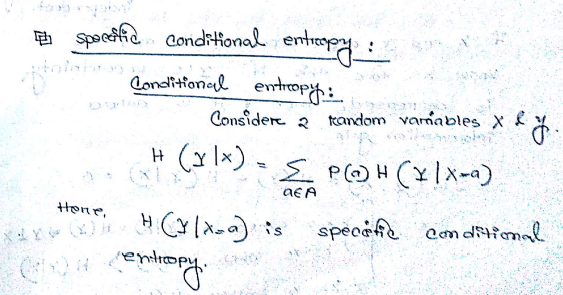 specific conditional entropy :
Conditional entropy :
Consider 2 random variables X & y.
H (Y|X) = Σ P(a) H (Y | X=a)
a∈A
Here, H (Y|X=a) is specific conditional
entropy.